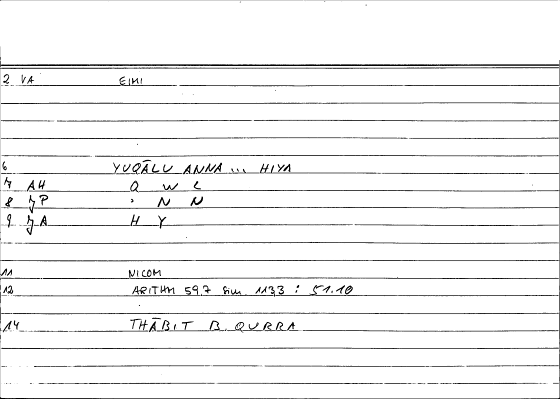 2 VA EIMI
6 YUQĀLU ANNA ... HIYA
7 AH Q W L
8 JP ' N N
9 JA H Y
11 NICOM
12 ARITHM 59.7 sim. 113,3 : 51.10
14 THĀBIT B. QURRA